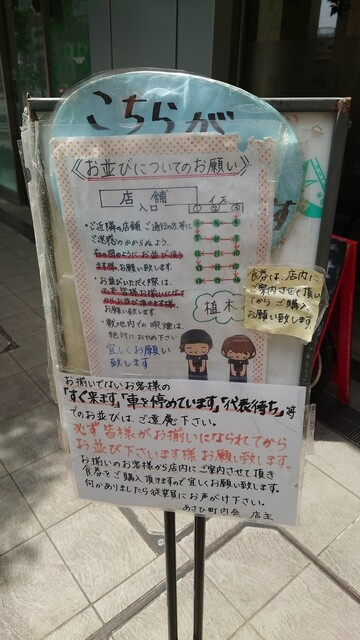 こちらが
《お並びについてのお願い》
店舗
入口
イス
・ご近隣の店舗、ご通行の方等に
ご迷惑のかからぬよう、
右の図のようにお並び頂き
ます様、お願い致します。
・お並びいただく際は、
必ず皆様お揃いになって
からお並び頂きます様、
お願い致します。
・敷地内での喫煙は、
絶対におやめ下さい
宜しくお願い
致します
植木
食券は、店内に
ご案内させて頂い
てからご購入
お願い致します
お揃いでないお客様の
「すぐ来ます」「車を停めています」「代表待ち」等
でのお並びは、ご遠慮下さい。
必ず皆様がお揃いになられてから
お並び下さいます様お願い致します。
お揃いのお客様から店内にご案内させて頂き
食券をご購入頂きますので宜しくお願い致します。
何かありましたら従業員にお声がけ下さい。
あさひ町内会 店主